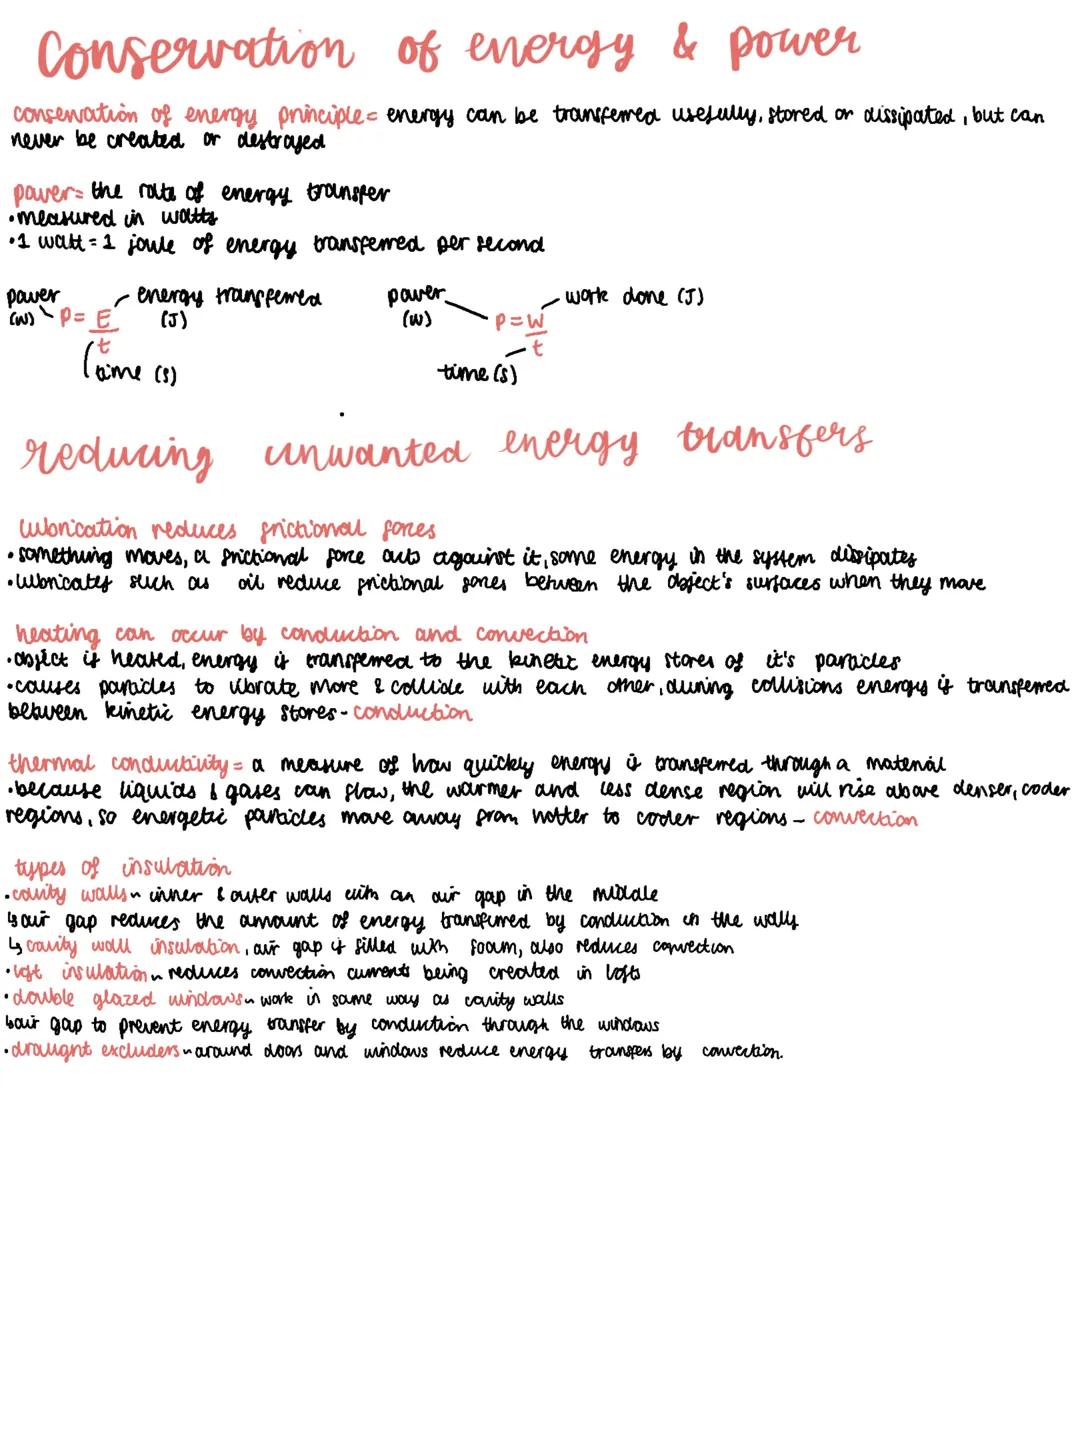 Conservation of energy & power
conservation of energy principle = energy can be transferred usefully, stored or dissipated, but can
never be created or destroyed
power = the rate of energy transfer
• measured in watts
• 1 watt = 1 joule of energy transferred per second
power energy transferred power work done (J)
(W) P = E (J) (W) P = W
t t
time (s) time (s)
reducing unwanted energy transfers
lubrication reduces frictional forces
• something moves, a frictional force acts against it, some energy in the system dissipates
• lubricates such as oil reduce frictional forces between the object's surfaces when they move
heating can occur by conduction and convection
• object is heated, energy is transferred to the kinetic energy stores of it's particles
• causes particles to vibrate more & collide with each other, during collisions energy is transferred
between kinetic energy stores - conduction
thermal conductivity = a measure of how quickly energy is transferred through a material
• because liquids & gases can flow, the warmer and less dense region will rise above denser, cooler
regions, so energetic particles move away from hotter to cooler regions - convection
types of insulation
• cavity walls ~ inner & outer walls with an air gap in the middle
↳ air gap reduces the amount of energy transferred by conduction in the walls
↳ cavity wall insulation, air gap is filled with foam, also reduces convection
• loft insulation ~ reduces convection currents being created in lofts
• double glazed windows ~ work in same way as cavity walls
↳ air gap to prevent energy transfer by conduction through the windows
• draught excluders ~ around doors and windows reduce energy transfers by convection.